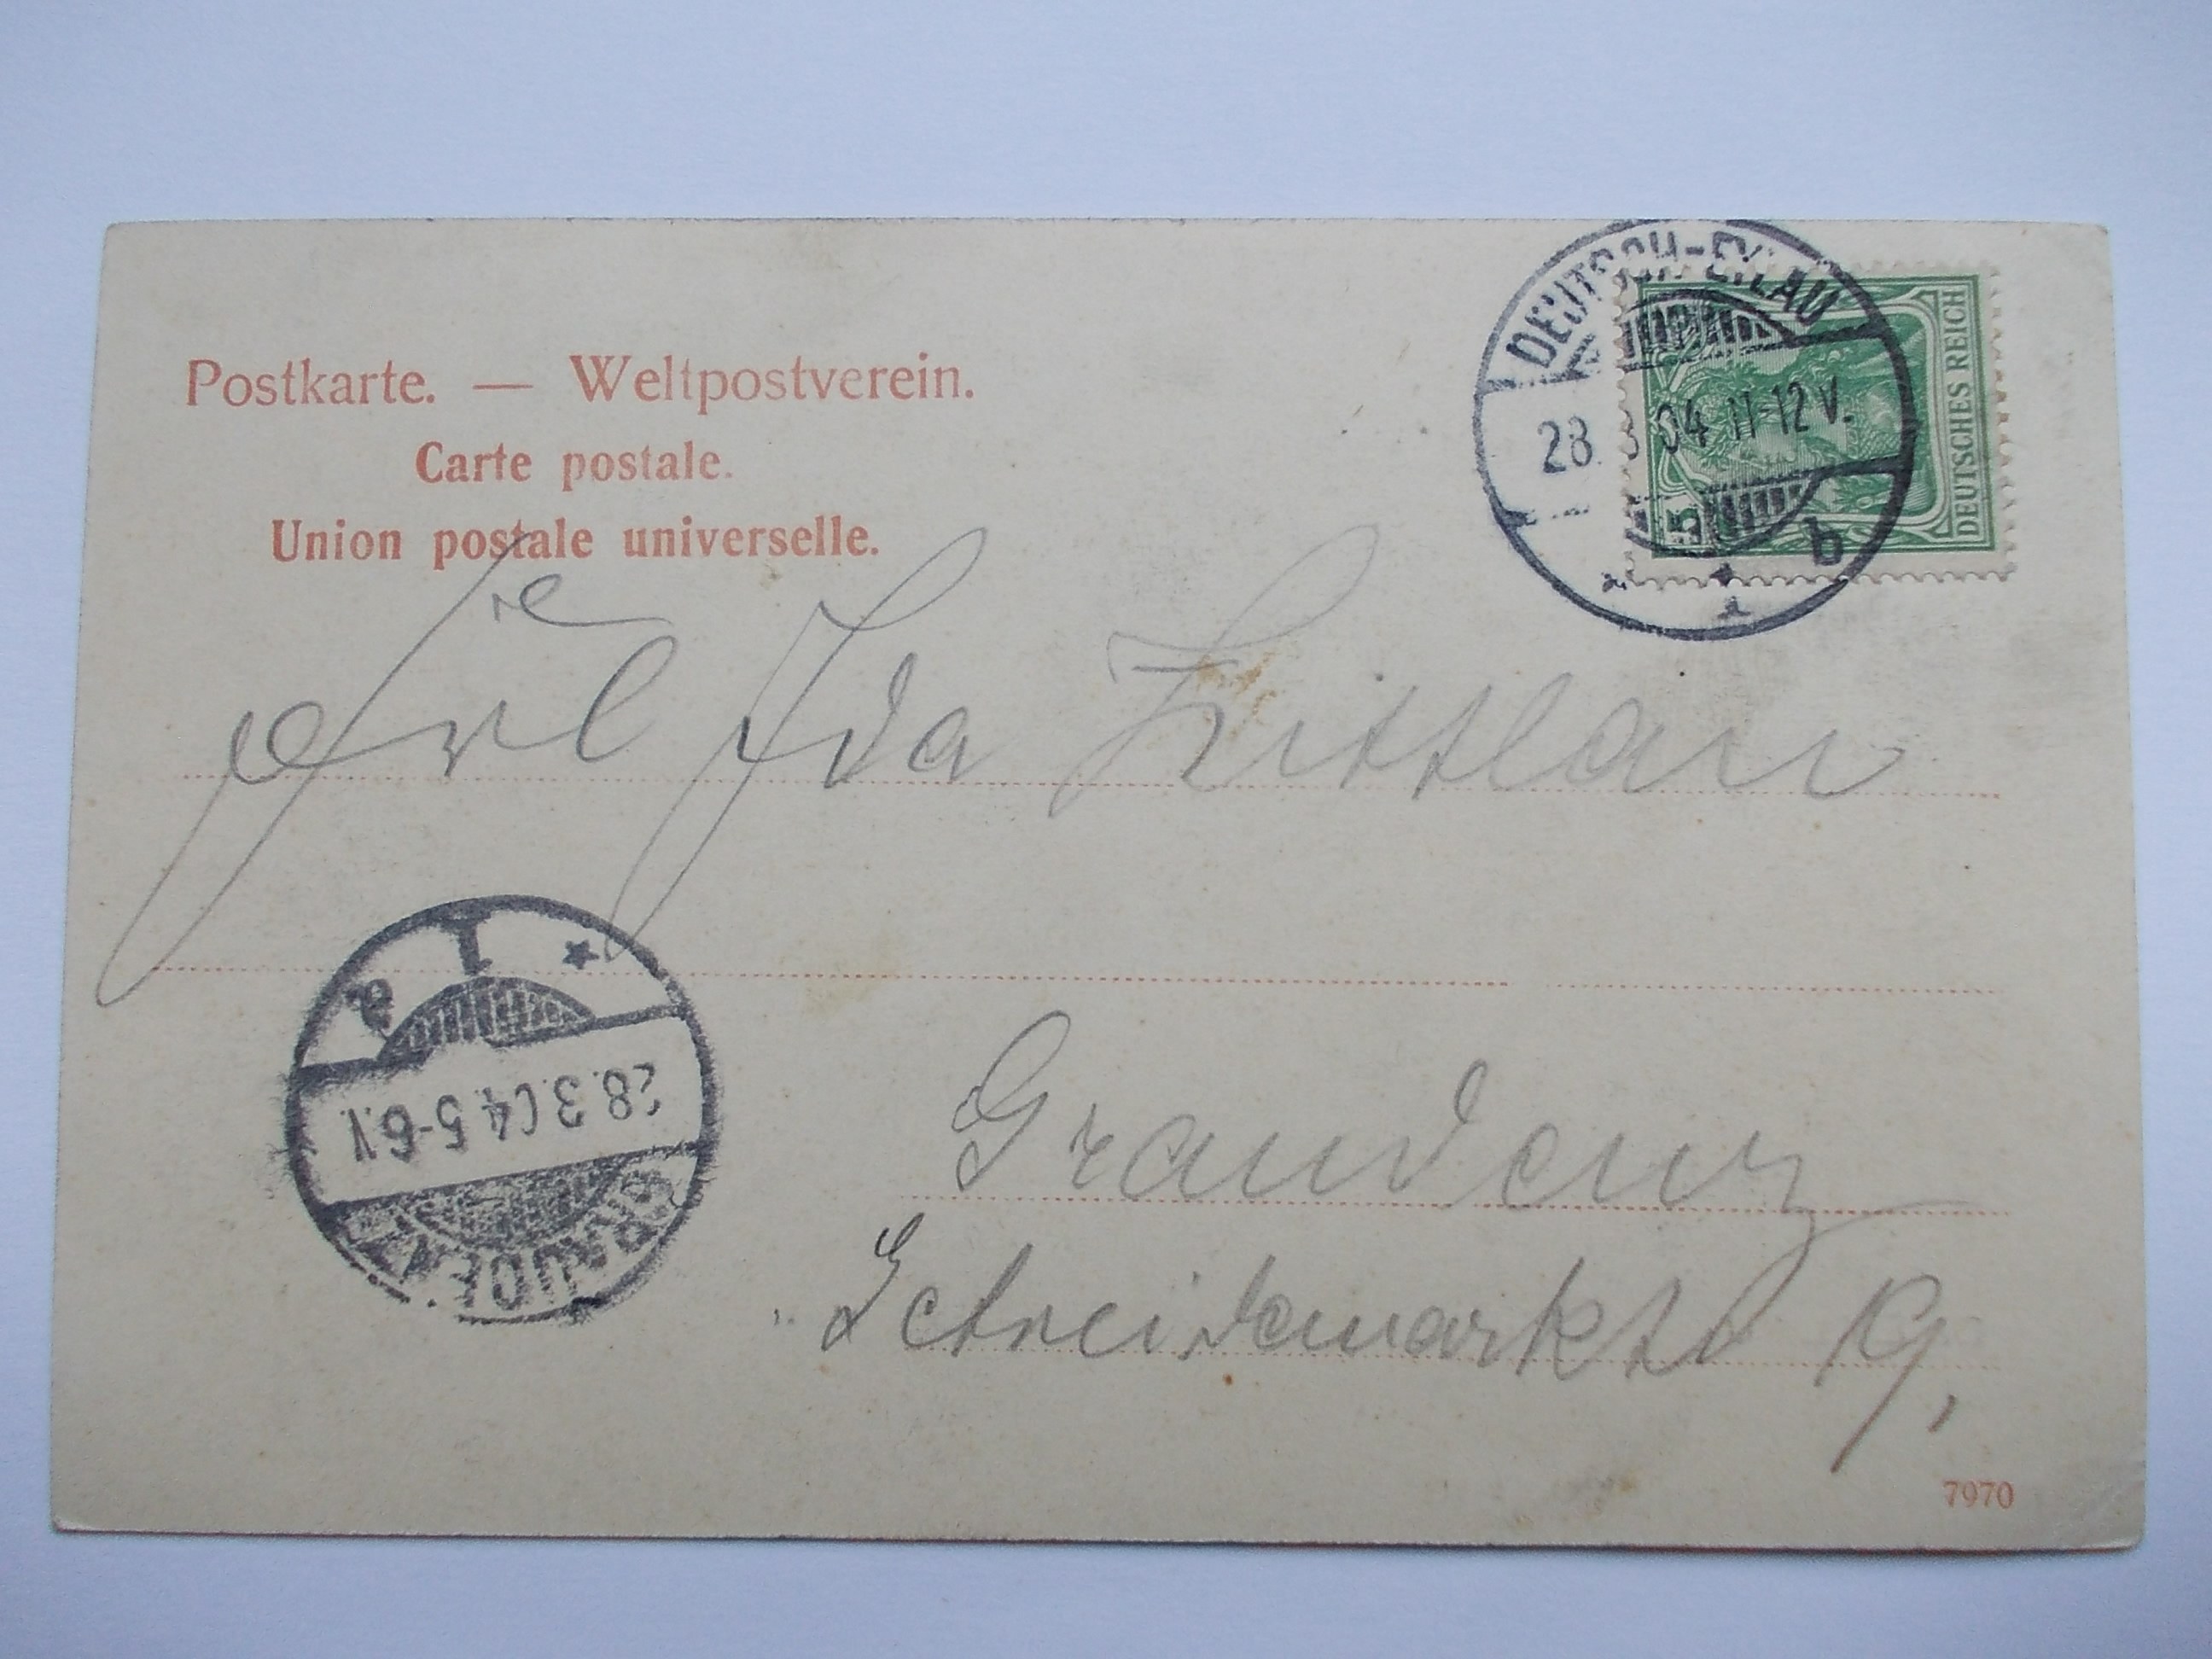 Postkarte. — Weltpostverein.
Carte postale.
Union postale universelle.
DEUTSCH-EYLAU
28 3 04 11-12 V.
b
DEUTSCHES REICH
5
Frl Ida
1
a
28.3.04. 5-6.V
GRAUDENZ
Graudenz
Getreidemarkt 19,
7970